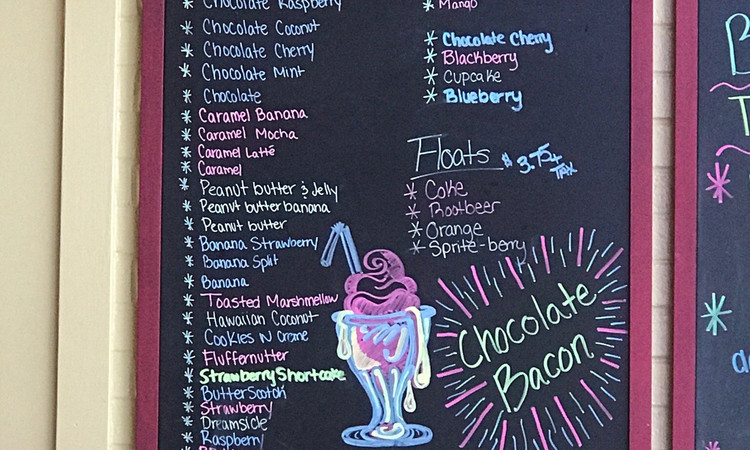 * Chocolate Raspberry
* Chocolate Coconut
* Chocolate Cherry
* Chocolate Mint
* Chocolate
* Caramel Banana
* Caramel Mocha
* Caramel Latté
* Caramel
* Peanut butter & Jelly
* Peanut butter banana
* Peanut butter
* Banana Strawberry
* Banana Split
* Banana
* Toasted Marshmellow
* Hawaiian Coconut
* Cookies N Creme
* Fluffernutter
* Strawberry Shortcake
* Butterscotch
* Strawberry
* Dreamsicle
* Raspberry
* Mango
* Chocolate Cherry
* Blackberry
* Cupcake
* Blueberry
Floats $3.75 + TAX
* Coke
* Rootbeer
* Orange
* Sprite-berry
Chocolate
Bacon